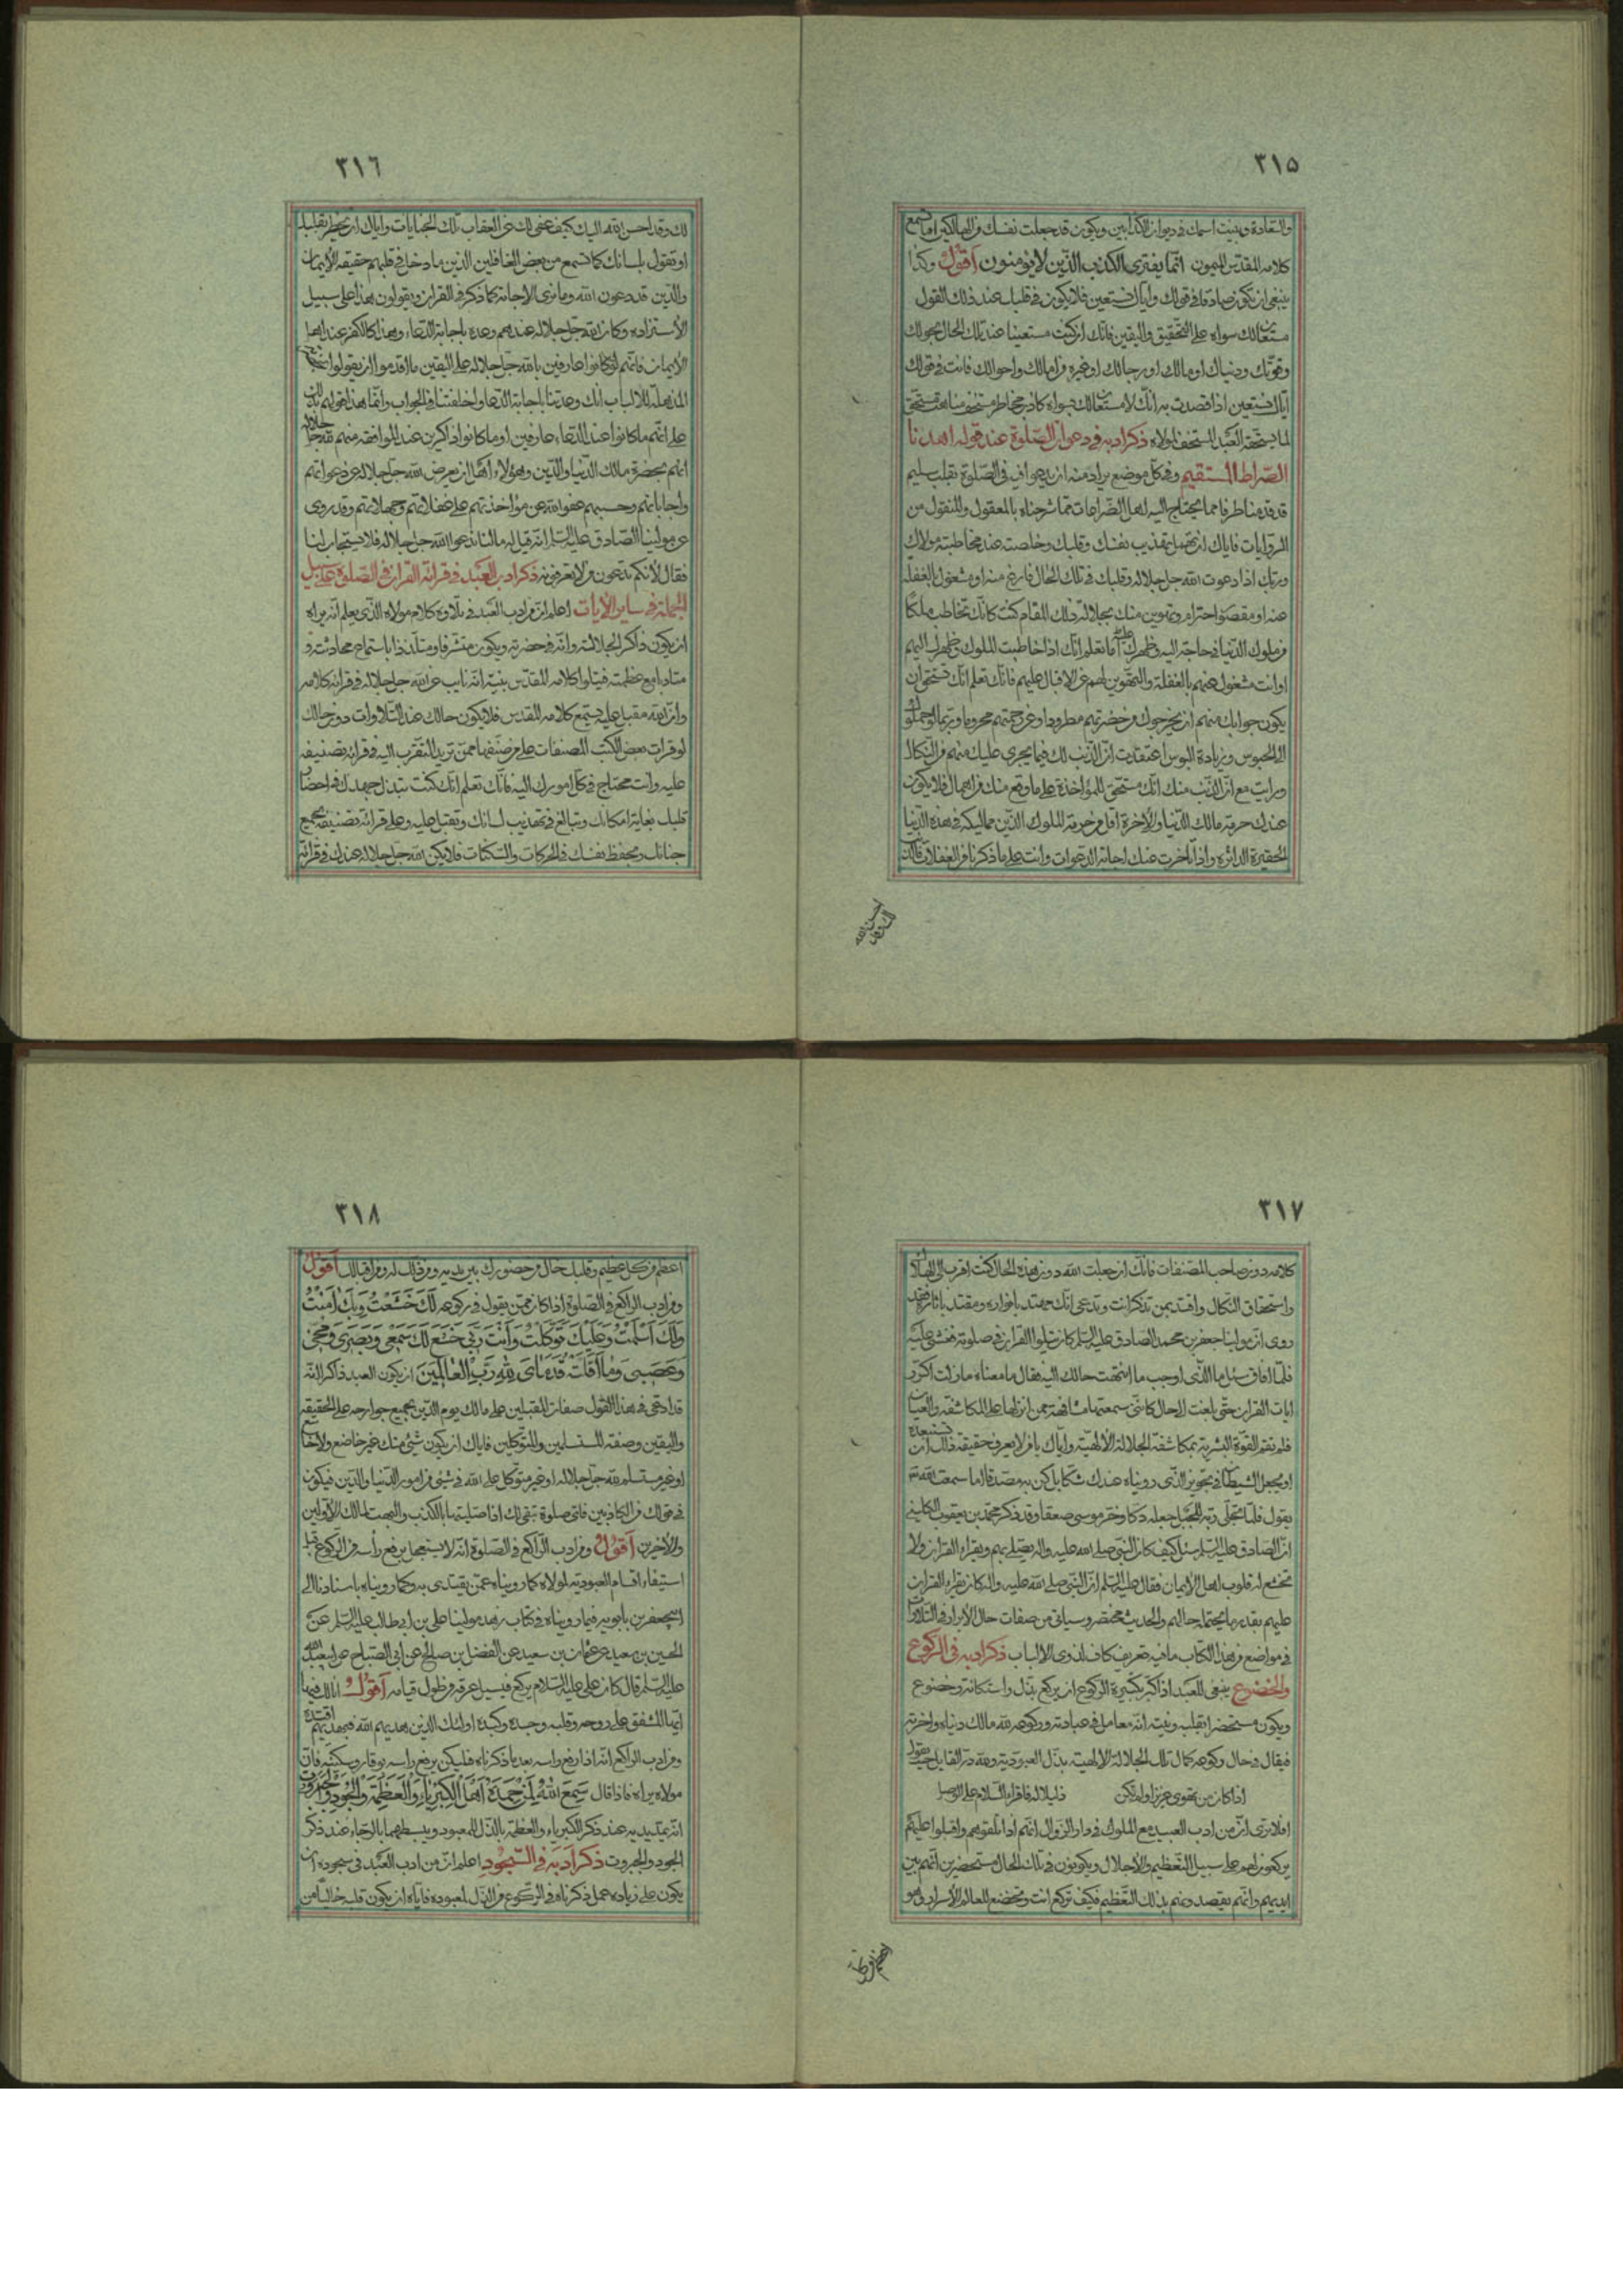 ٣١٥
والسعادة ويثبت اسمك في ديوان الكذابين ويكون قد جعلت نفسك من الهالكين اما تسمع
كلامه المقدس الميمون انما يفترى الكذب الذين لا يؤمنون أقول وكذا
ينبغى ان تكون صادقا في قولك واياك نستعين فلا يكون في قلبك عند ذلك القول
مستعان لك سواه على التحقيق واليقين فانك ان كنت مستعينا عند تلك الحال بحولك
وقوتك ودنياك او مالك او رجالك او غيره من امالك واحوالك فانت في قولك
اياك نستعين اذا قصدت به انك لا مستعان لك سواه كاذب مخاطر مستخف مباهت مستحق
لما يستحقه العبد المستخف لمولاه ذكر ادبه في دعوات الصلوة عند قوله اهدنا
الصراط المستقيم وفي كل موضع يراد منه ان يدعو افي في الصلوة بقلب سليم
قد قدمنا طرفا مما يحتاج اليه اهل الضراعات مما شرحناه بالمعقول والمنقول من
الروايات فاياك ان تهمل تهذيب نفسك وقلبك وخاصته عند مخاطبته مولاك
وربك اذا دعوت الله جل جلاله وقلبك في تلك الحال فارغ منه او مشغول بالغفلة
عنه او مقصرا احترام وتهوين منك بجلالة ذلك المقام كنت كانك تخاطب ملكا
من ملوك الدنيا في حاجة اليه وظهرك عليه اما تعلم انك اذا خاطبت الملوك وظهرك اليهم
او انت مشغول عنهم بالغفلة والتهوين لهم عن الاقبال عليهم فانك تعلم انك تستحق ان
يكون جوابك منهم ان يخرجوك من حضرتهم مطرودا وعن رحمتهم محروما وربما لو حملوك
الى الحبوس وزيادة البوس اعتقدت ان الذنب لك فيما يجرى عليك منهم من النكال
ورايت مع ان الذنب منك انك مستحق للمؤاخذة على ما وقع منك من اهمال فلا يكون
عندك حرمة مالك الدنيا والاخرة اقل من حرمة الملوك الذين مماليكه في هذه الدنيا
الحقيرة الداثرة واذا تاخرت عنك اجابة الدعوات وانت على ما ذكرنا من الغفلات فالذنب
٣١٦
لك وقد احسن الله اليك كيف عفى لك عن العقاب بتلك الجنايات واياك ان يخطر بقلبك
او تقول بلسانك كما تسمع من بعض الغافلين الذين ما دخل في قلبهم حقيقة الايمان
والدين قد دعون الله وما نرى الاجابة كما ذكر في القران ويقولون هذا على سبيل
الاستزادة وكان الله جل جلاله عندهم وعده باجابة الدعاء وهذا كالكفر عند اهل
الايمان فانهم لو كانوا عارفين بالله جل جلاله على اليقين ما اقدموا ان يقولوا
المذهلة للالباب انك وعدتنا باجابة الدعاء واخلفتنا في الجواب وانما هذا قولهم يدل
على انهم ما كانوا عند الدعاء عارفين او ما كانوا ذاكرين عند الموافقة منهم لله جل جلاله
انهم بحضرة مالك الدنيا والدين وهؤلاء اهل ان يعرض الله جل جلاله عن دعواتهم
واجاباتهم وحسبهم عفو الله عن مؤاخذتهم على غفلاتهم وجهلاتهم وقد روى
عن مولينا الصادق عليه السلم انه قيل له ما لنا ندعوا الله جل جلاله فلا يستجاب لنا
فقال لانكم تدعون من لا تعرفونه ذكر ادب العبد في قرائة القران في الصلوة على سبيل
الجملة في ساير الآيات اعلم ان من ادب العبد في تلاوة كلام مولاه الذى يعلم انه يراه
ان يكون ذاكرا لجلالته وانه في حضرته ويكون متشرفا ومتلذذا باستماع محادثته و
متادبا مع عظمته فيتلوا كلامه المقدس بنية انه نايب عن الله جل جلاله في قرائة كلامه
وان الله مقبل عليه يستمع كلامه المقدس فلا يكون حالك عند التلاوات دون حالك
لو قرات بعض الكتب المصنفات على من صنفها ممن تريد التقرب اليه في قرائة تصنيفه
عليه وانت محتاج في كل امورك اليه فانك تعلم انك كنت تبذل جهدك في احضار
قلبك بغاية امكانك وتبالغ في تهذيب لسانك وتقبل عليه وعلى قرائة تصنيفه بجميع
جنانك وتحفظ نفسك في الحركات والسكنات فلا يكن الله جل جلاله عندك في قرائة
٣١٧
كلامه دون صاحب المصنفات فانك ان جعلت الله دون هذه الحال كنت اقرب الى الهلاك
واستحقاق النكال واقتد بمن تذكر انت وتدعى انك مهتد بانواره ومقتد باثاره فقد
روى ان مولينا جعفر بن محمد الصادق عليه السلم كان يتلوا القران في صلوته فغشى عليه
فلما افاق سئل ما الذى اوجب ما انتهت حالك اليه فقال ما معناه ما زلت اكرر
ايات القران حتى بلغت الى حال كاننى سمعتها مشافهة ممن انزلها على المكاشفة والعيان
فلم تقم القوة البشرية بمكاشفة الجلالة الالهية واياك يا من لا يعرف حقيقة ذلك ان تستبعده
او يجعل الشيطان في تجويز الذى رويناه عندك شكا بل كن به مصدقا اما سمعت الله
يقول فلما تجلى ربه للجبل جعله دكا وخر موسى صعقا وقد ذكر محمد بن يعقوب الكلينى
ان الصادق عليه السلم سئل كيف كان النبى صلى الله عليه واله يصلى بهم ويقراء القران ولا
تخشع له قلوب اهل الايمان فقال عليه السلم ان النبى صلى الله عليه واله كان يقراء القران
عليهم بقدر ما يحتمله حالهم والحديث مختصر وسياتى من صفات حال الابرار في التلاوات
في مواضع من هذا الكتاب ما فيه تعريف كاف لذوى الالباب ذكر ادبه في الركوع
والخضوع ينبغى للعبد اذا كبر تكبيرة الركوع ان يركع بذل واستكانة وخضوع
ويكون مستحضرا بقلبه ونيته انه معامل في عبادته وركوعه لله مالك دنياه واخرته
فيقال في حال ركوعه كمال تلك الجلالة الالهية بذل العبودية ولله در القايل حيث يقول
اذا كان من تهوى عزيزا ولم تكن ذليلا له فاقراء السلام على الوصل
افلا ترى ان من ادب العبيد مع الملوك في دار الزوال انهم اذا تلقوهم واقبلوا عليهم
يركعون لهم على سبيل التعظيم والاجلال ويكونون في تلك الحال مستحضرين انهم بين
ايديهم وانهم يقصدونهم بذلك التعظيم فكيف تركع انت وتخضع للعالم الاسرار وهو
٣١٨
اعظم من كل عظيم وقلبك خال من حضورك بين يديه ومن ذلك له ومن اقبالك أقول
ومن ادب الراكع في الصلوة اذا كان ممن يقول في ركوعه لَكَ خَشَعْتُ وَبِكَ آمَنْتُ
وَلَكَ أَسْلَمْتُ وَعَلَيْكَ تَوَكَّلْتُ وَأَنْتَ رَبِّي خَشَعَ لَكَ سَمْعِي وَبَصَرِي وَمُخِّي
وَعَصَبِي وَمَا أَقَلَّتْ قَدَمَايَ لِلَّهِ رَبِّ الْعَالَمِينَ ان يكون العبد ذاكرا انه
قد ادعى في هذا القول صفات المقبلين على مالك يوم الدين بجميع جوارحه على الحقيقة
واليقين وصفة المستسلمين والمتوكلين فاياك ان يكون شئ منك غير خاضع ولا خاشع
او غير مستسلم لله جل جلاله او غير متوكل على الله في شئ من امور الدنيا والدين فيكون
في قولك من الكاذبين فاى صلوة تبقى لك اذا صليتها بالكذب والبهت لمالك الاولين
والآخرين أقول ومن ادب الراكع في الصلوة انه لا يستعجل برفع رأسه من الركوع قبل
استيفاء اقسام العبودية لمولاه كما رويناه عمن يقتدى به وكما رويناه باسنادنا الى
ابى جعفر بن بابويه فيما رويناه في كتاب زهد مولينا على بن ابى طالب عليه السلم عن
الحسين بن سعيد عن عثمان بن سعيد عن الفضل بن صالح عن ابى الصباح عن ابى عبد الله
عليه السلم قال كان على عليه السلام يركع فيسيل عرقه من طول قيامه أقول انا لك فيها
ايها المشفق على روحه وقلبه وجسده وكبده اولئك الذين هديهم الله فبهديهم اقتده
ومن ادب الراكع انه اذا رفع راسه بعد ما ذكرناه فليكن يرفع راسه بوقار وسكينة فان
مولاه يراه فاذا قال سَمِعَ اللهُ لِمَنْ حَمِدَهُ أَهْلَ الْكِبْرِيَاءِ وَالْعَظَمَةِ وَالْجُودِ وَالْجَبَرُوتِ
انه يمد يديه عند ذكر الكبرياء والعظمة بالذل للمعبود ويبسطهما بالرجاء عند ذكر
الجود والجبروت ذكر ادبه في السجود اعلم ان من ادب العبد في سجوده ان
يكون على زيادة عمل ذكرناه في الركوع من الذل لمعبوده فاياه ان يكون قلبه خاليا من